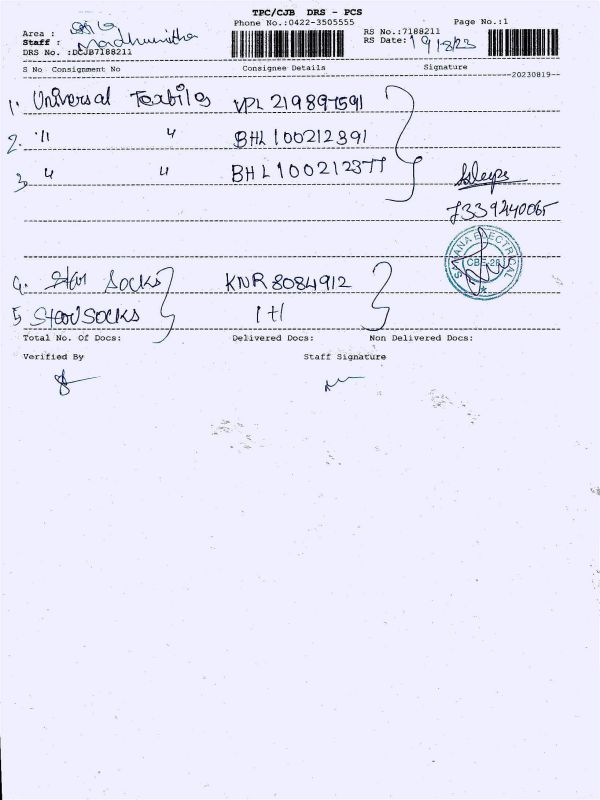 TPC/CJB DRS - PCS
Phone No.:0422-3505555
Page No.:1
Area :
Staff : Madhumitha
DRS No. :DCJB7188211
RS No.:7188211
RS Date: 19/8/23
S No Consignment No Consignee Details Signature
20230819
1. Universal Textiles VPL 219897591
2. " " BHL 100212391
3. " " BHL 100212377
7339240065
SAHANA ELECTRICAL
4. Star Socks KNR 8084912
5 Star SOCKS 1+1
Total No. Of Docs: Delivered Docs: Non Delivered Docs:
Verified By Staff Signature